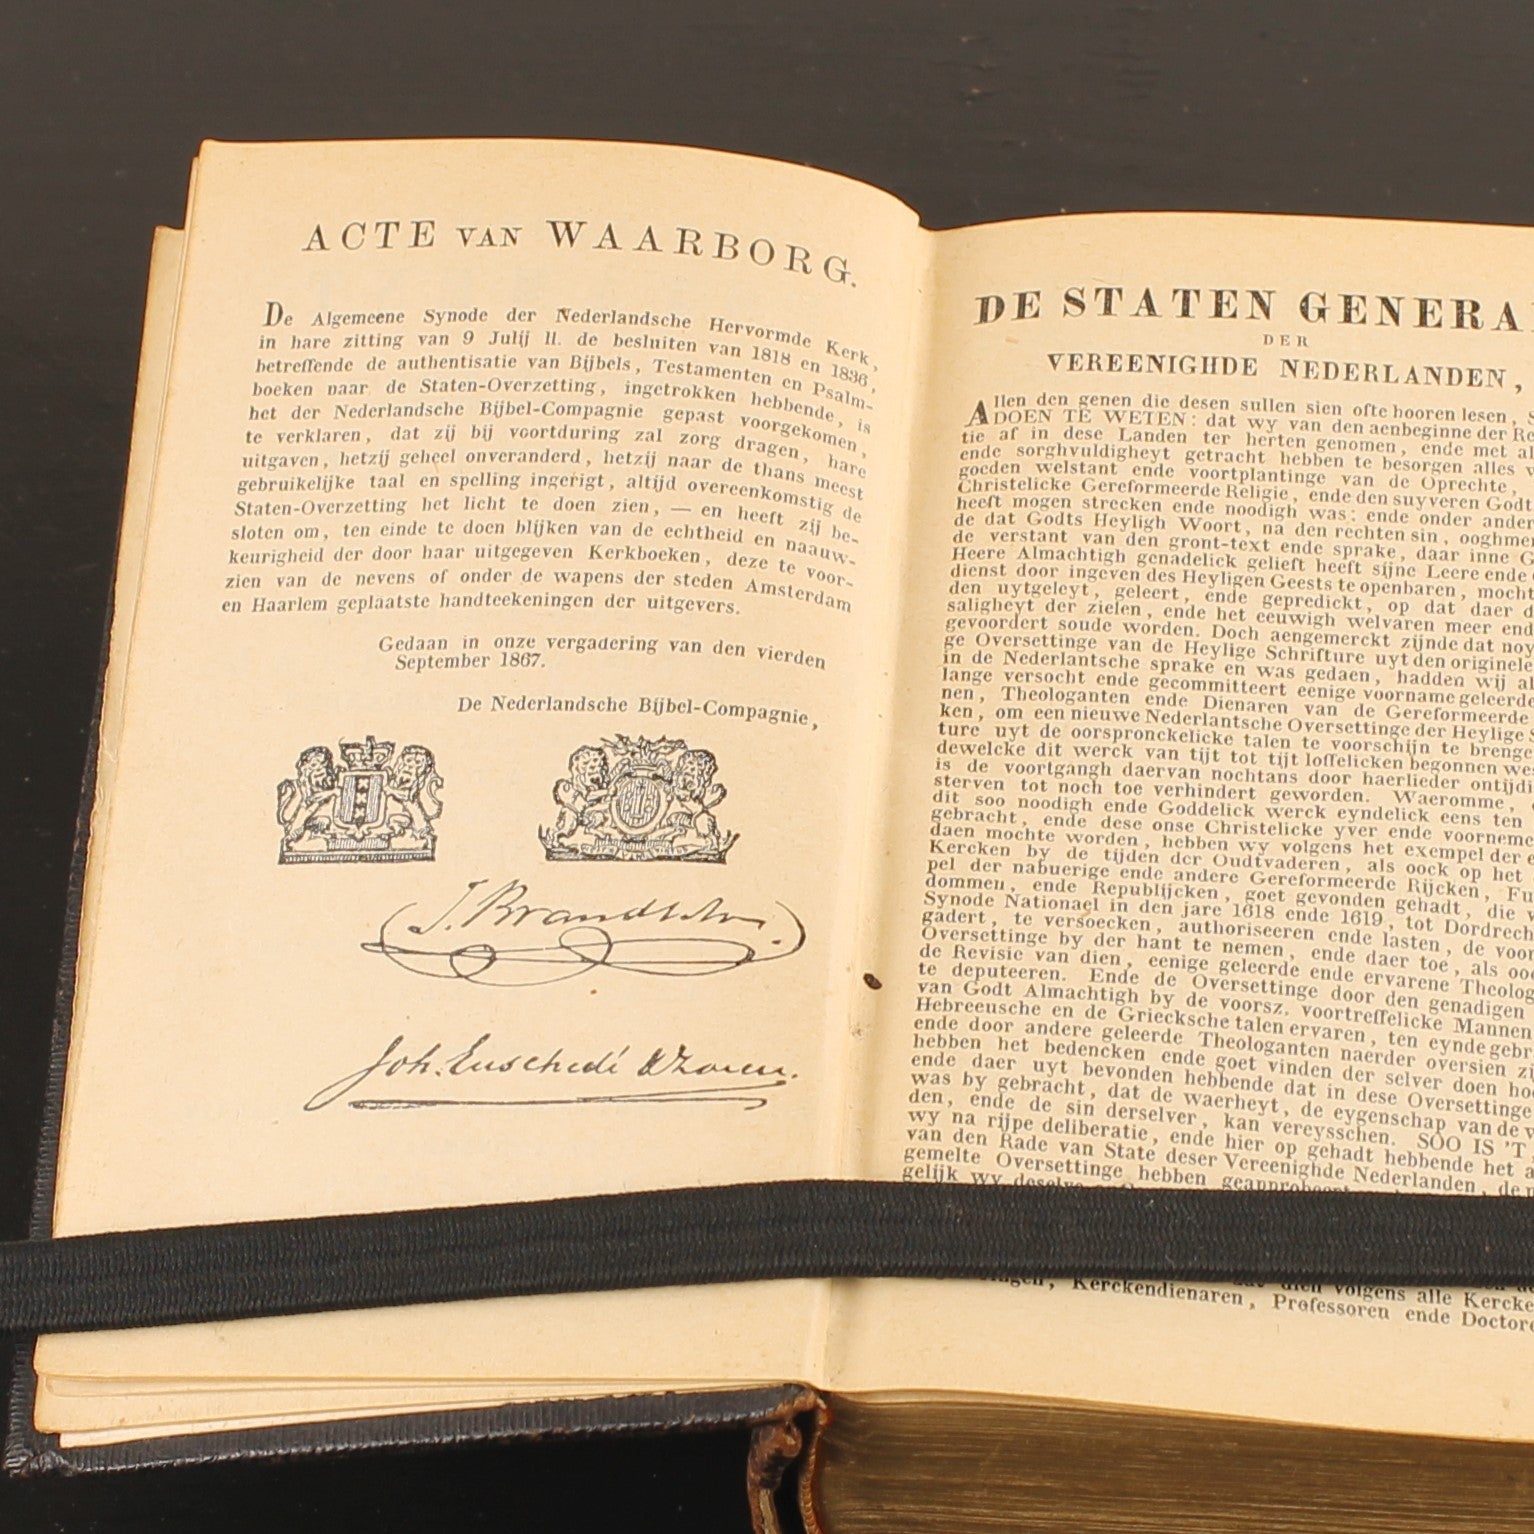 ACTE VAN WAARBORG.
De Algemeene Synode der Nederlandsche Hervormde Kerk,
in hare zitting van 9 Julij ll. de besluiten van 1818 en 1836,
betreffende de authentisatie van Bijbels, Testamenten en Psalm-
boeken naar de Staten-Overzetting, ingetrokken hebbende, is
het der Nederlandsche Bijbel-Compagnie gepast voorgekomen,
te verklaren, dat zij bij voortduring zal zorg dragen, hare
uitgaven, hetzij geheel onveranderd, hetzij naar de thans meest
gebruikelijke taal en spelling ingerigt, altijd overeenkomstig de
Staten-Overzetting het licht te doen zien, — en heeft zij be-
sloten om, ten einde te doen blijken van de echtheid en naauw-
keurigheid der door haar uitgegeven Kerkboeken, deze te voor-
zien van de nevens of onder de wapens der steden Amsterdam
en Haarlem geplaatste handteekeningen der uitgevers.
Gedaan in onze vergadering van den vierden
September 1867.
De Nederlandsche Bijbel-Compagnie,
Joh. Enschedé & Zonen.
DE STATEN GENERA
DER
VEREENIGHDE NEDERLANDEN,
Allen den genen die desen sullen sien ofte hooren lesen, S
DOEN TE WETEN: dat wy van den aenbeginne der Re
tie af in dese Landen ter herten genomen, ende met al
ende sorghvuldigheyt getracht hebben te besorgen alles w
goeden welstant ende voortplantinge van de Oprechte,
Christelicke Gereformeerde Religie, ende den suyveren Godt
heeft mogen strecken ende noodigh was: ende onder ander
de dat Godts Heyligh Woort, na den rechten sin, ooghmer
de verstant van den gront-text ende sprake, daar inne G
Heere Almachtigh genadelick gelieft heeft sijne Leere ende
dienst door ingeven des Heyligen Geests te openbaren, mocht
den uytgeleyt, geleert, ende gepredickt, op dat daer d
saligheyt der zielen, ende het eeuwigh welvaren meer end
gevoordert soude worden. Doch aengemerckt zijnde dat noy
ge Oversettinge van de Heylige Schrifture uyt den originele
in de Nederlantsche sprake en was gedaen, hadden wij al
lange versocht ende gecommitteert eenige voorname geleerde
nen, Theologanten ende Dienaren van de Gereformeerde
ken, om een nieuwe Nederlantsche Oversettinge der Heylige S
ture uyt de oorspronckelicke talen te voorschijn te brenge
dewelcke dit werck van tijt tot tijt loffelicken begonnen we
is de voortgangh daervan nochtans door haerlieder ontijdi
sterven tot noch toe verhindert geworden. Waeromme,
dit soo noodigh ende Goddelick werck eyndelick eens ten
gebracht, ende dese onse Christelicke yver ende voorneme
daen mochte worden, hebben wy volgens het exempel der e
Kercken by de tijden der Oudtvaderen, als oock op het
pel der nabuerige ende andere Gereformeerde Rijcken, Fu
dommen, ende Republijcken, goet gevonden gehadt, die v
Synode Nationael in den jare 1618 ende 1619, tot Dordrech
gadert, te versoecken, authoriseeren ende lasten, de voor
Oversettinge by der hant te nemen, ende daer toe, als ooc
de Revisie van dien, eenige geleerde ende ervarene Theolog
te deputeeren. Ende de Oversettinge door den genadigen
van Godt Almachtigh by de voorsz. voortreffelicke Mannen
Hebreeusche en de Griecksche talen ervaren, ten eynde gebr
ende door andere geleerde Theologanten naerder oversien zij
hebben het bedencken ende goet vinden der selver doen hoo
ende daer uyt bevonden hebbende dat in dese Oversettinge
was by gebracht, dat de waerheyt, de eygenschap van de w
den, ende de sin derselver, kan vereysschen. SOO IS 'T,
wy na rijpe deliberatie, ende hier op gehadt hebbende het a
van den Rade van State deser Vereenighde Nederlanden, de
gemelte Oversettinge hebben geapprobeert
gelijk wy deselve
dat dien volgens alle Kercke
Kerckendienaren, Professoren ende Doctore